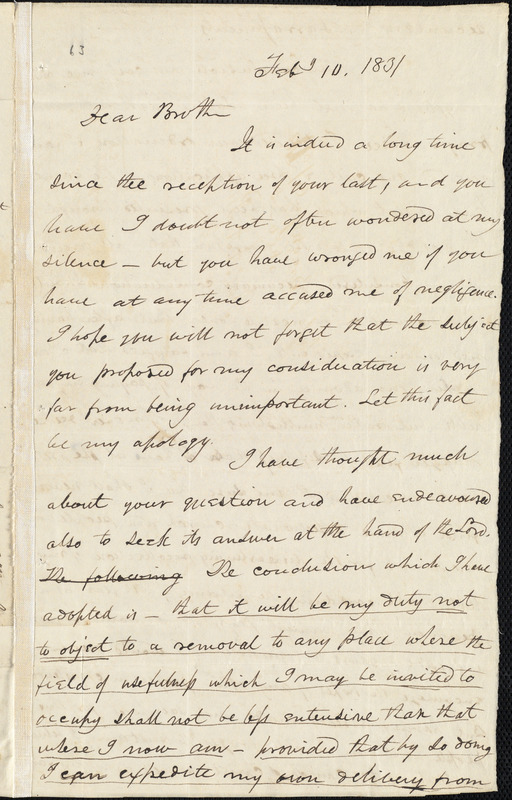 63
Feby 10. 1831
Dear Brother
It is indeed a long time
since the reception of your last, and you
have I doubt not often wondered at my
silence - but you have wronged me if you
have at any time accused me of negligence.
I hope you will not forget that the subject
you proposed for my consideration is very
far from being unimportant. Let this fact
be my apology.
I have thought much
about your question and have endeavoured
also to seek its answer at the hand of the Lord.
The following The conclusion which I have
adopted is - that it will be my duty not
to object to a removal to any place where the
field of usefulness which I may be invited to
occupy shall not be less extensive than that
where I now am - provided that by so doing
I can expedite my own delivery from